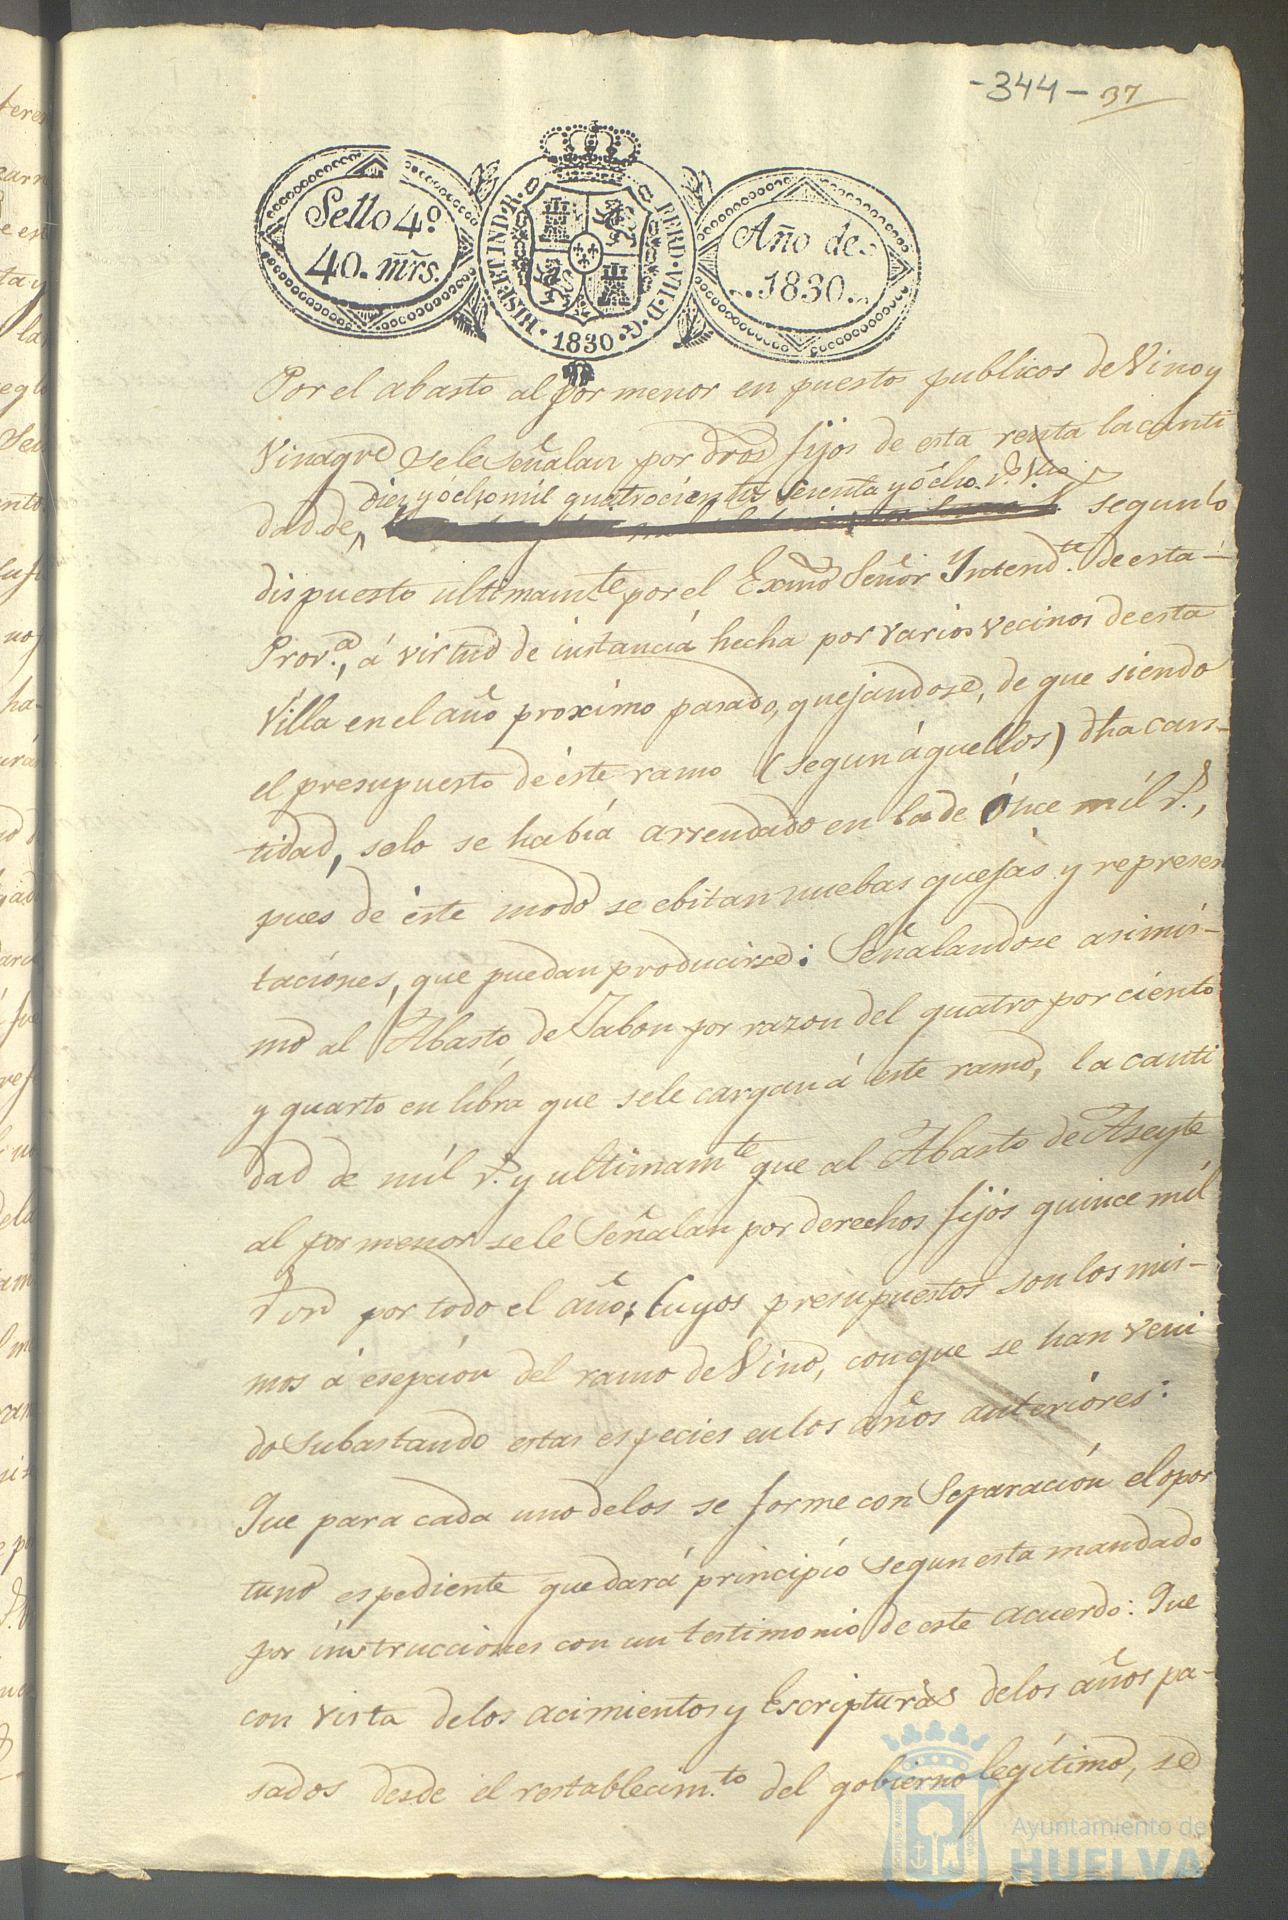 -344- 37
Sello 4º
40. mr̃s.
HISP.ET IND.R. FERD.VII.D.G. 1830
Año de
1830.
Por el abasto al por menor en puestos publicos de Vino y
Vinagre se le Señalan por dros fijos de esta renta la canti
diez y ócho mil quatrocientos setenta y ócho r.s V.on
dad de, segun lo
dispuesto ultimam.te por el Exmo Señor Yntend.te de esta
Prov.a, á virtud de instancia hecha por varios vecinos de esta
Villa en el año proximo pasado, quejandose, de que siendo
el presupuesto de éste ramo (segun áquellos) dha can-
tidad, solo se había arrendado en la de ónce mil r.s,
pues de éste modo se ebitan nuebas quejas y represen
taciones, que puedan producirse: Señalandose asimis-
mo al Abasto de Jabon por razon del quatro por ciento
y quarto en libra que se le cargan á este ramo, la canti
dad de mil r.s y ultimam.te que al Abasto de Aseyte
al por menor se le Señalan por derechos fijos quince mil
r.s von por todo el año; Cuyos presupuestos son los mis-
mos á esepcion del ramo de Vino, con que se han veni
do Subastando estas especies en los años anteriores:
Que para cada uno de los se forme con Separación el opor
tuno espediente que dará principio segun esta mandado
por instrucciones con un testimonio de este acuerdo: Que
con vista de los acimientos y Escripturas de los años pa-
sados desde el restablecim.to del gobierno legítimo, se
Ayuntamiento de
HUELVA